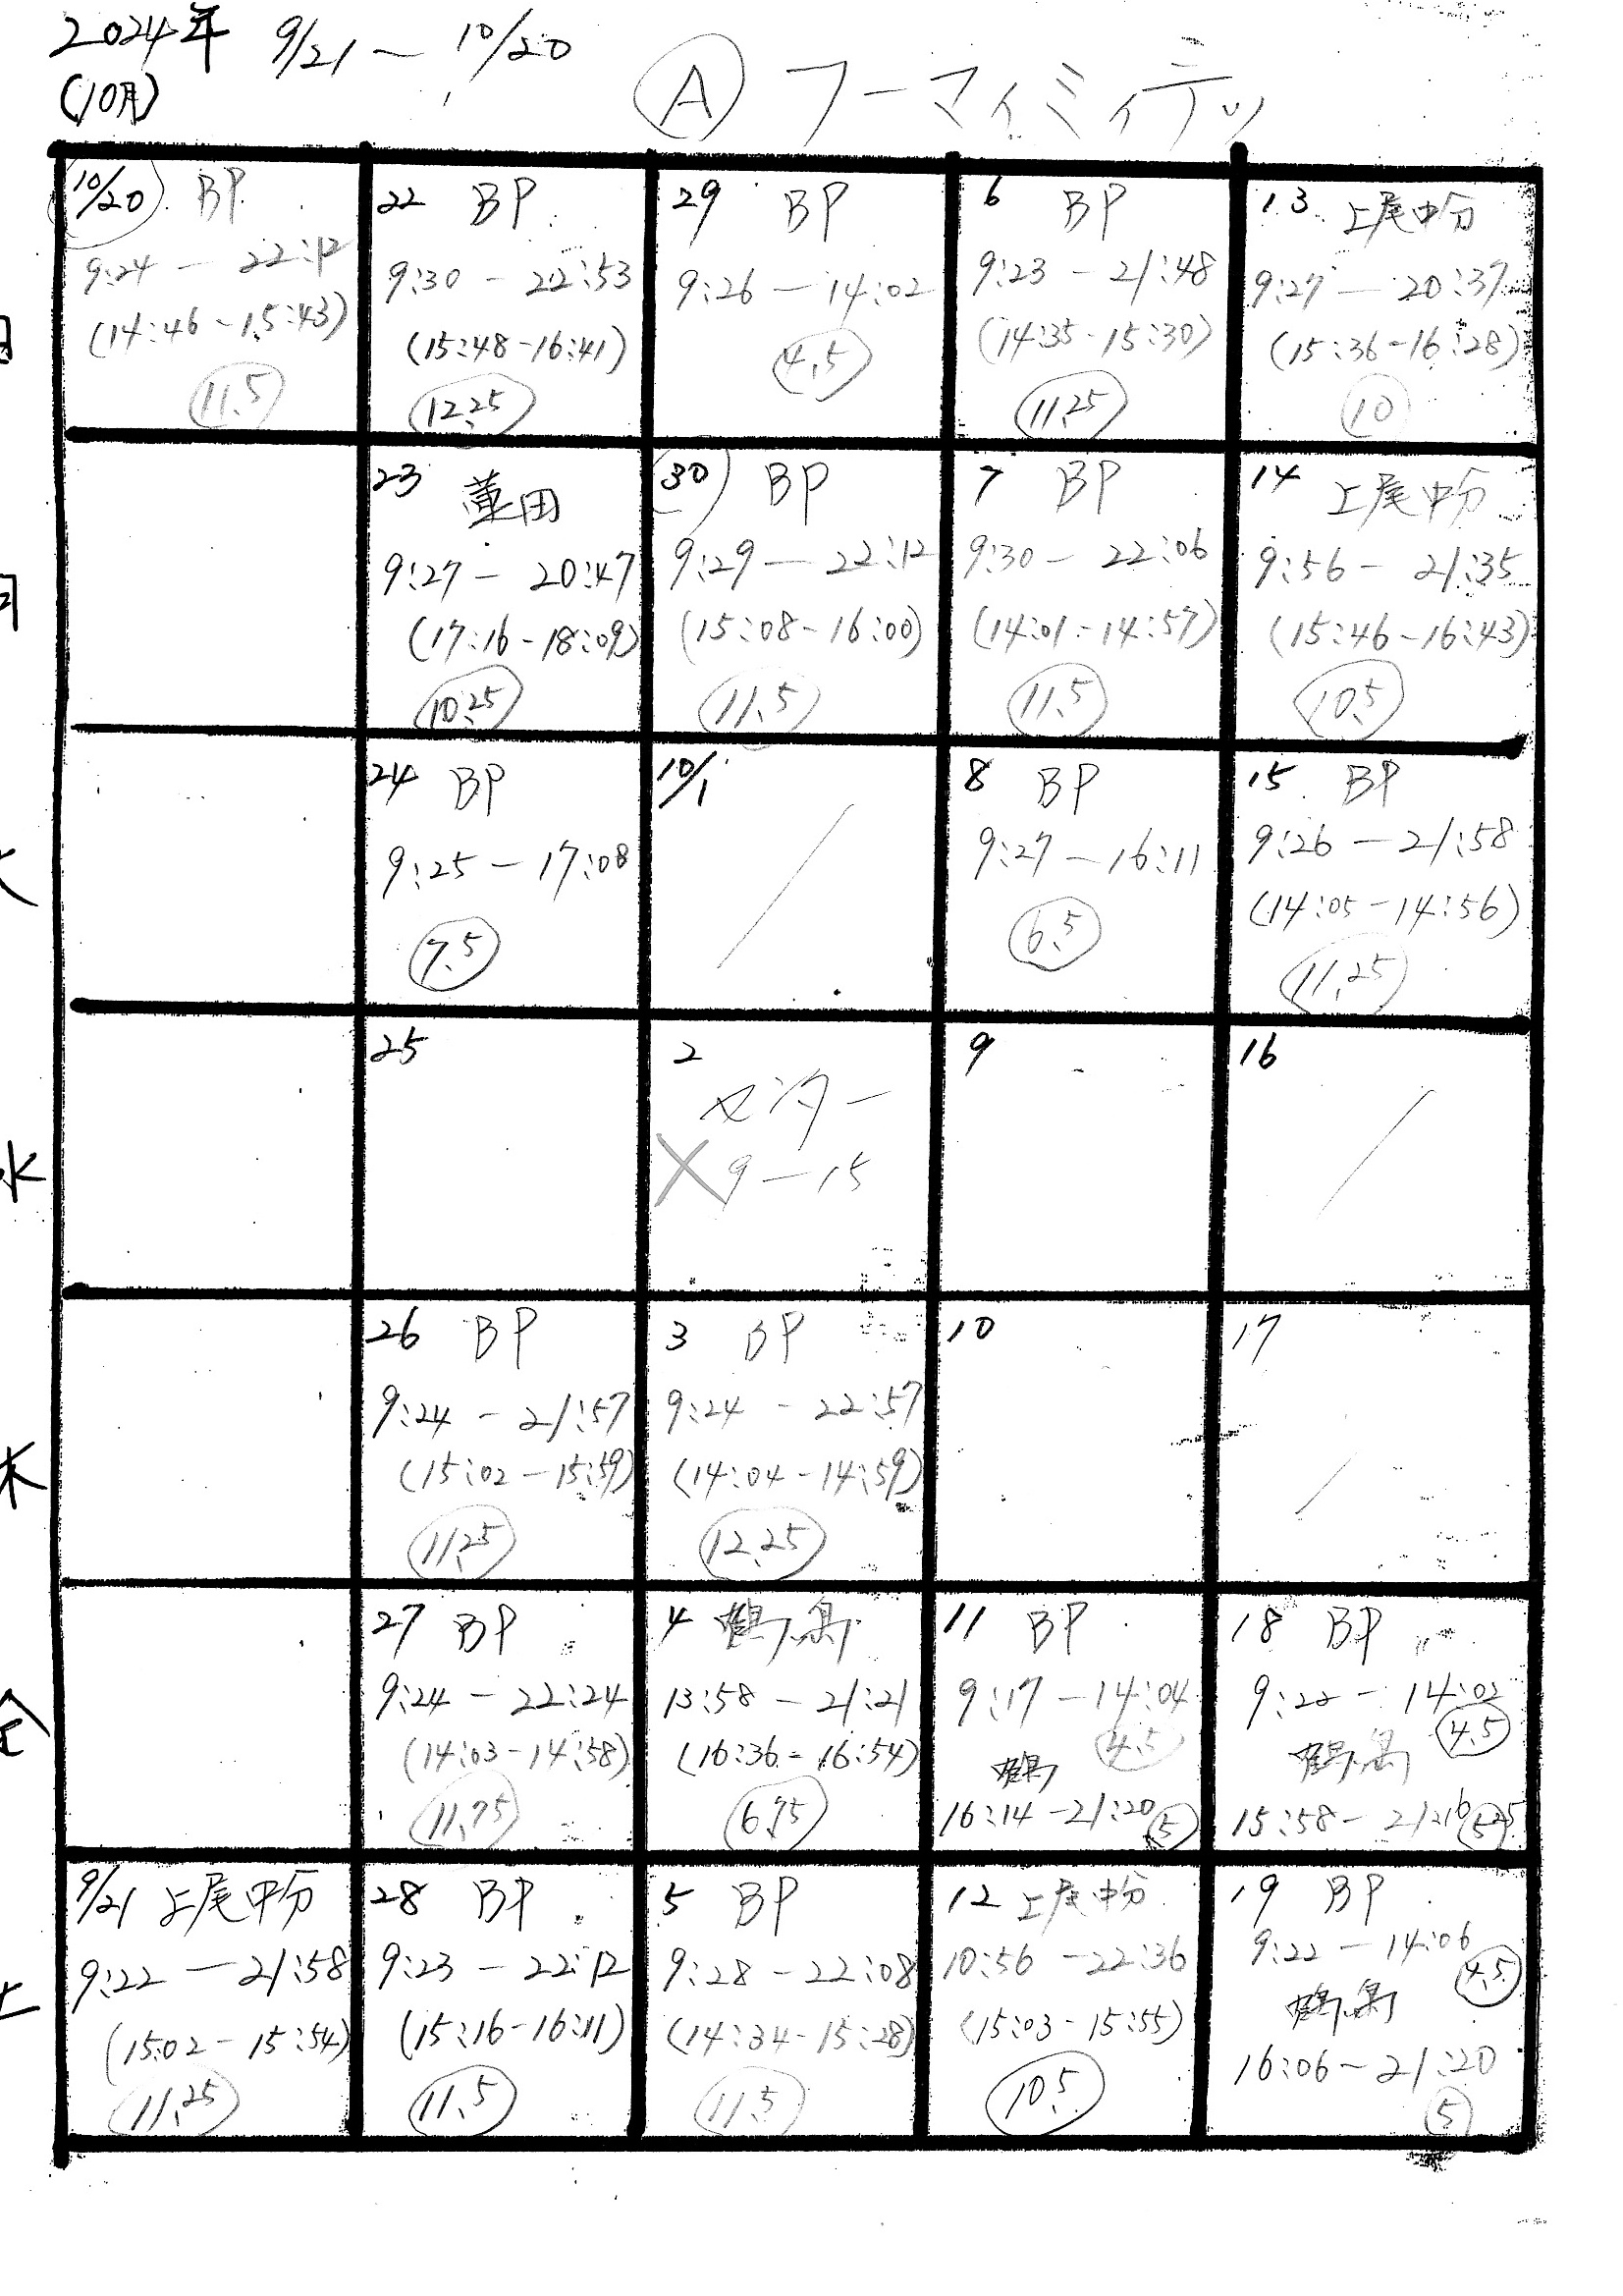 2024年 9/21 ～ 10/20
(10月)
Ⓐ フーマイミイテツ
日
10/20 BP
9:24 - 22:12
(14:46 - 15:43)
11.5
22 BP
9:30 - 22:53
(15:48 - 16:41)
12.25
29 BP
9:26 - 14:02
4.5
6 BP
9:23 - 21:48
(14:35 - 15:30)
11.25
13 上尾中分
9:27 - 20:37
(15:36 - 16:28)
10
月
23 蓮田
9:27 - 20:47
(17:16 - 18:09)
10.25
30 BP
9:29 - 22:12
(15:08 - 16:00)
11.5
7 BP
9:30 - 22:06
(14:01 - 14:57)
11.5
14 上尾中分
9:56 - 21:35
(15:46 - 16:43)
10.5
火
24 BP
9:25 - 17:08
7.5
10/1
8 BP
9:27 - 16:11
6.5
15 BP
9:26 - 21:58
(14:05 - 14:56)
11.25
水
25
2
×9 - 15
9
16
木
26 BP
9:24 - 21:57
(15:02 - 15:59)
11.25
3 BP
9:24 - 22:57
(14:04 - 14:59)
12.25
10
17
金
27 BP
9:24 - 22:24
(14:03 - 14:58)
11.75
4 鶴ヶ島
13:58 - 21:21
(16:36 - 16:54)
6.75
11 BP
9:17 - 14:04
4.5
鶴
16:14 - 21:20 5
18 BP
9:22 - 14:02
4.5
鶴ヶ島
15:58 - 21:16 5.25
土
9/21 上尾中分
9:22 - 21:58
(15:02 - 15:54)
11.25
28 BP
9:23 - 22:12
(15:16 - 16:11)
11.5
5 BP
9:28 - 22:08
(14:34 - 15:28)
11.5
12 上尾中分
10:56 - 22:36
(15:03 - 15:55)
10.5
19 BP
9:22 - 14:06
4.5
鶴ヶ島
16:06 - 21:20
5